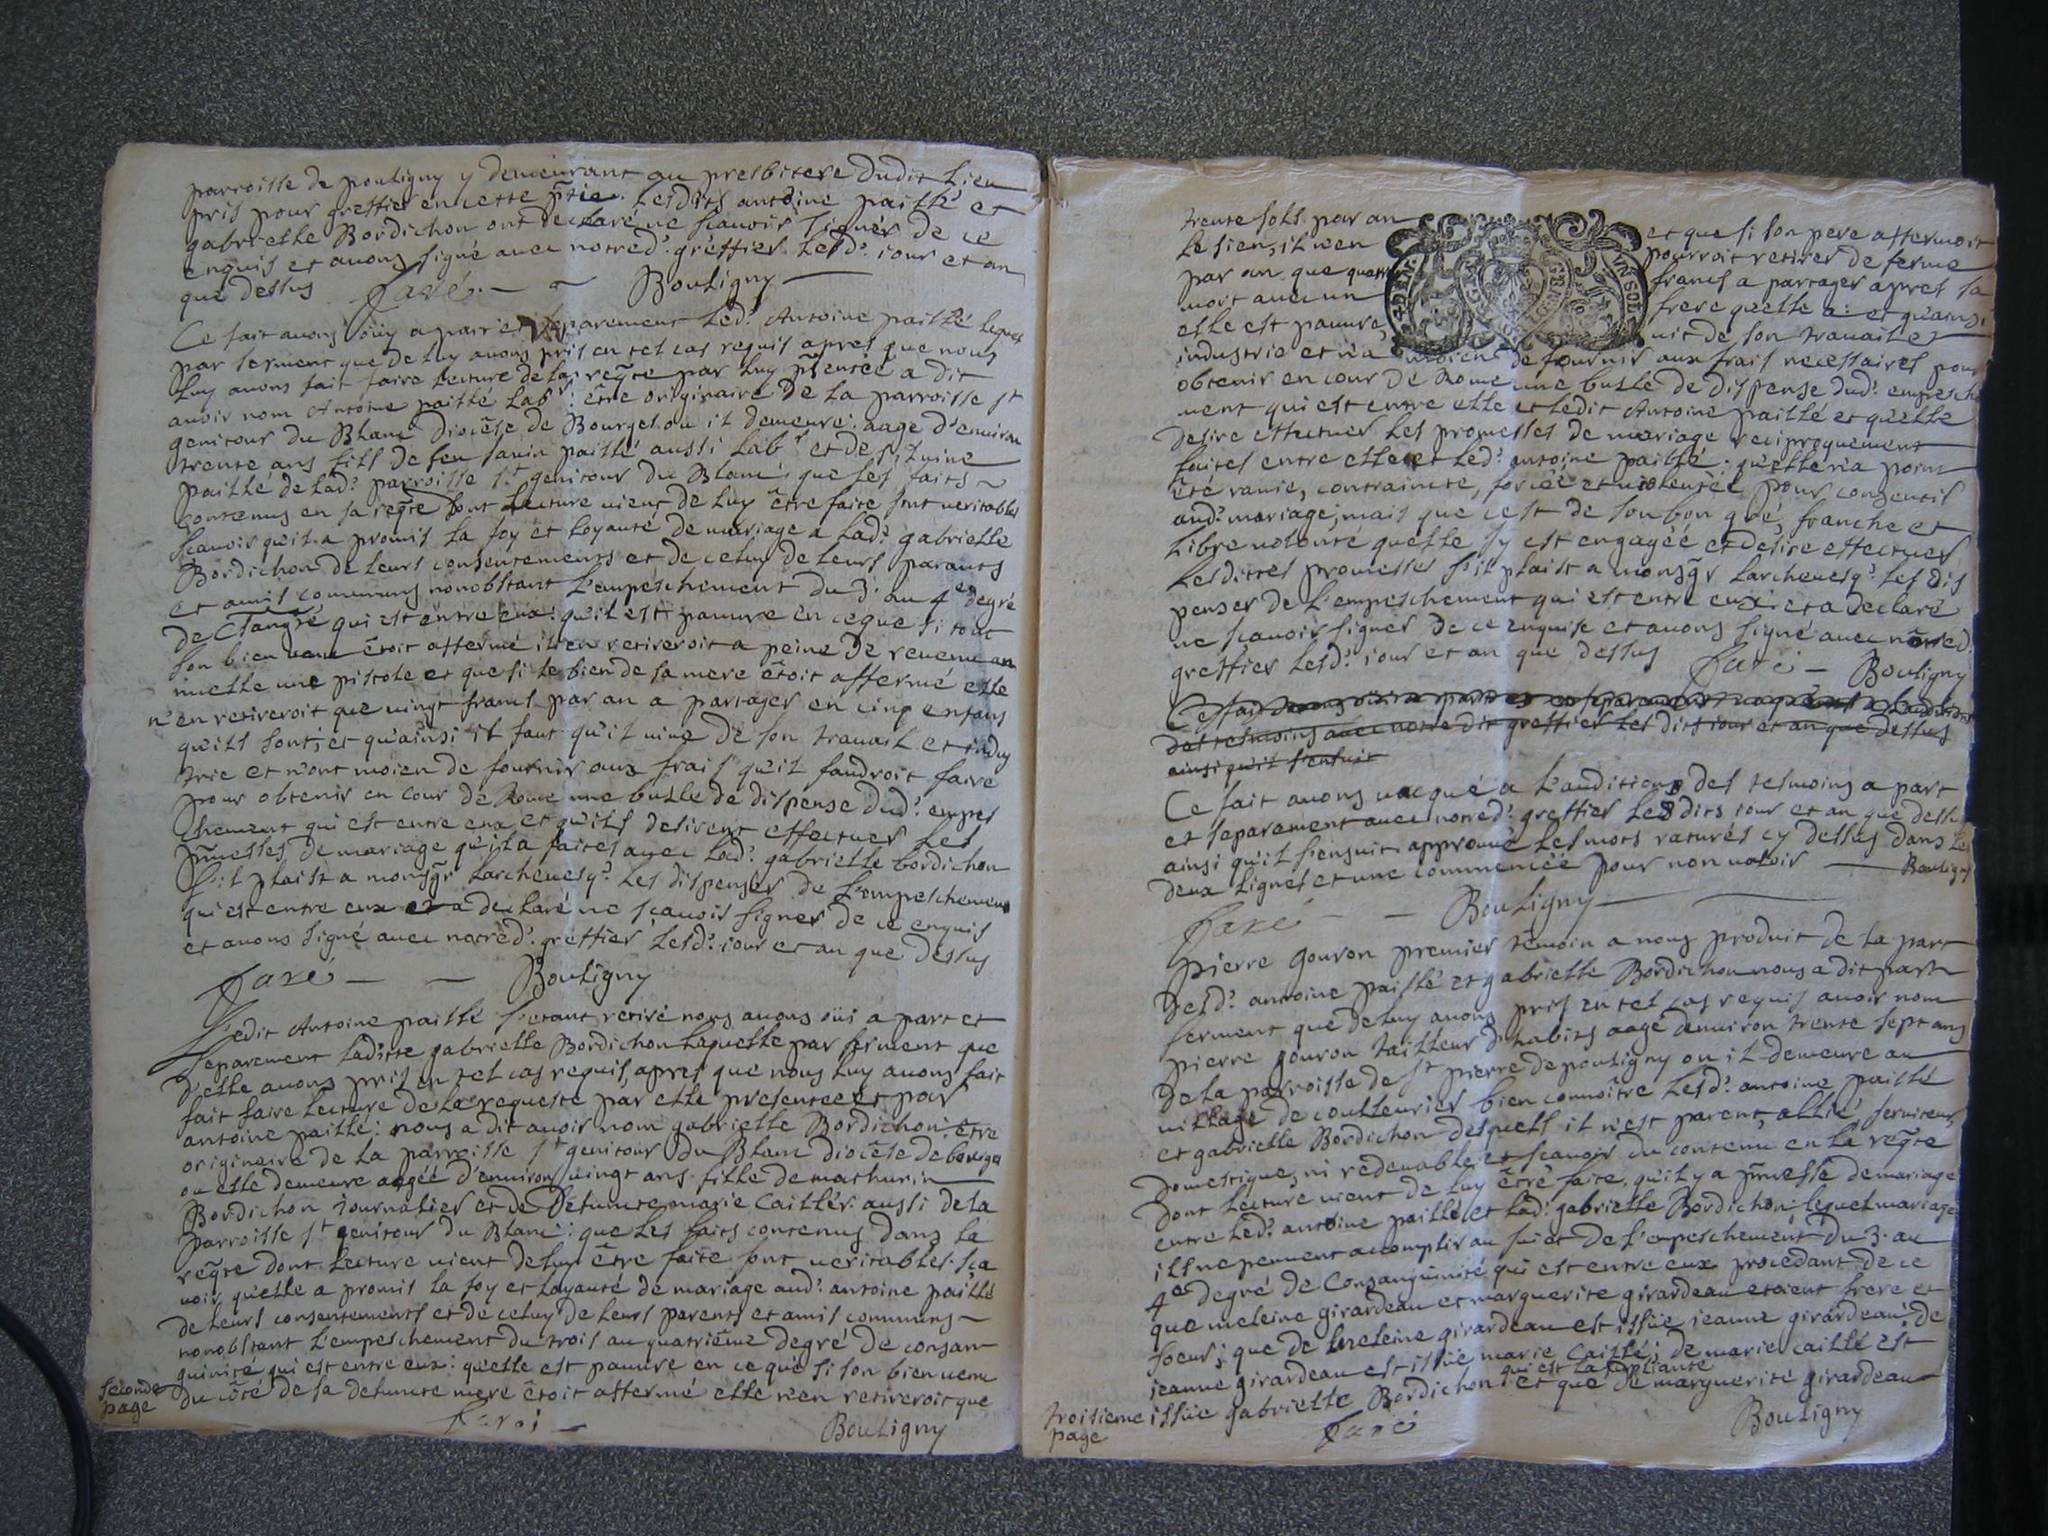 parroisse de pouligny y demeurant au presbitere dudit Lieu
pris pour greffier en cette ptie. Lesdits antoine paillé et
gabrielle Bordichon ont declaré ne sçavoir signer de ce
enquis et avons signé avec notred. greffier Lesd. iour et an
que dessus faré Bouligny
Ce fait avons oüy a part et separement Led. Antoine paillé lequel
par serment que de Luy avons pris en tel cas requis apres que nous
Luy avons fait faire Lecture de la reqte par Luy pñtée a dit
avoir nom Antoine paillé Labr. être originaire de La parroisse st
genitour du Blanc Diocêse de Bourges ou il demeure: aagé d'environ
trente ans fils de feu paillé aussi Labr et de
paillé de Lad. parroisse st. genitour du Blanc: que Les faits
contenus en sa reqte dont Lecture vient de Luy être faite sont veritables
sçavoir qu'il a promis La foy et Loyauté de mariage a Lad. gabrielle
Bordichon de Leurs consentements et de celuy de Leurs parants
et amis communs nonobstant L'empeschement du 3. au 4e degré
de qui est entre eux: qu'il est pauvre en ce que si tout
son bien étoit affermé il en retireroit a peine de revenu an
nuelle une pistole et que si Le bien de sa mere étoit affermé elle
n'en retireroit que vingt francs par an a partager en cinq enfans
qu'ils sont; et qu'ainsi il faut qu'il vive de son travail et indus
trie et n'ont moien de fournir aux frais qu'il faudroit faire
pour obtenir en cour de Rome une bulle de dispense dud. empes
chement qui est entre eux et qu'ils desirent effectuer Les
pmesses de mariage qu'il a faites avec Lad. gabrielle bordichon
s'il plaist a monsgr Larchevesq. Les dispenser de L'empeschement
qui est entre eux et a declaré ne sçavoir signer de ce enquis
et avons signé avec notred. greffier Lesd. iour et an que dessus
faré Bouligny
Ledit Antoine paillé s'etant retiré nous avons oüi a part et
separement Laditte gabrielle Bordichon Laquelle par serment que
d'elle avons pris en tel cas requis, apres que nous Luy avons fait
fait faire Lecture de La requeste par elle presentée et par
antoine paillé: nous a dit avoir nom gabrielle Bordichon être
originaire de La parroisse st genitour du Blanc diocêse de bourges
ou elle demeure aagéé d'environ vingt ans fille de mathurin
Bordichon iournalier et de Defuncte marie Caillér aussi de La
parroisse st genitour du Blanc: que Les faits contenus dans La
reqte dont Lecture vient de Luy être faite sont veritables sça
voir qu'elle a promis La foy et Loyauté de mariage aud. antoine paillé
de Leurs consentements et de celuy de Leurs parents et amis communs
nonobstant L'empeschement du trois au quatriême degré de consan
guinité qui est entre eux: qu'elle est pauvre en ce que si son bien venu
du côté de sa defuncte mere étoit affermé elle n'en retireroit que
seconde page
faré Bouligny
trente sols par an et que si son pere affermoit
Le sien, il n'en pourroit retirer de ferme
par an que quatre francs a partager apres sa
mort avec un frere quelle a: et qu'ainsi
elle est pauvre, vit de son travail et
industrie et n'a moien de fournir aux frais necessaires pour
obtenir en cour de Rome une bulle de dispense dud. empesche
ment qui est entre elle et Ledit Antoine paillé et qu'elle
desire effectuer Les promesses de mariage reciproquement
faites entre elle et Led. antoine paillé; qu'elle n'a point
été ravie, contrainte, forcéé et violentée pour consentir
aud. mariage; mais que c'est de son bon gré, franche et
Libre volonté quelle s'y est engagéé et desire effectuer
Lesdittes promesses s'il plaist a monsgr Larchevesq. Les dis
penser de L'empeschement qui est entre eux: et a declaré
ne sçavoir signer de ce enquise et avons signé avec nôtred.
greffier Lesd. iour et an que dessus faré Bouligny
Ce fait avons oüi a part et separement L'audition
des tesmoins avec notre dit greffier Les dits iour et an que dessus
ainsi qu'il s'ensuit
Ce fait avons vacqué a L'audition des tesmoins a part
et separement avec notred. greffier Lesdits iour et an que dessus
ainsi qu'il s'ensuit. approuvé Les mots raturés cy dessus dans Les
deux Lignes et une commencéé pour non valoir Bouligny
faré Bouligny
pierre gouron premier têmoin a nous produit de La part
desd. antoine paillé et gabrielle Bordichon nous a dit par
serment que de Luy avons pris en tel cas requis avoir nom
pierre gouron tailleur d'habits aagé denviron trente sept ans
de La parroisse de st pierre de pouligny ou il demeure au
village de coulleurier bien connoître Lesd. antoine paillé
et gabrielle Bordichon desquels il n'est parent, allié, serviteur,
domestique, ni redevable et sçavoir du contenu en La reqte
dont Lecture vient de Luy être faite. qu'il y a pmesse de mariage
entre Led. antoine paillé et Lad. gabrielle Bordichon Lequel mariage
ils ne peuvent accomplir au suiet de L'empeschement du 3. au
4e degré de Consanguinité qui est entre eux procedant de ce
que meleine girardeau et marguerite girardeau etoient frere et
soeur; que de meleine girardeau est issüe ieanne girardeau: de
ieanne girardeau est issüe marie caillé; de marie caillé est
issüe gabrielle Bordichon qui est La supliante et que de marguerite girardeau
troisieme page
faré Bouligny